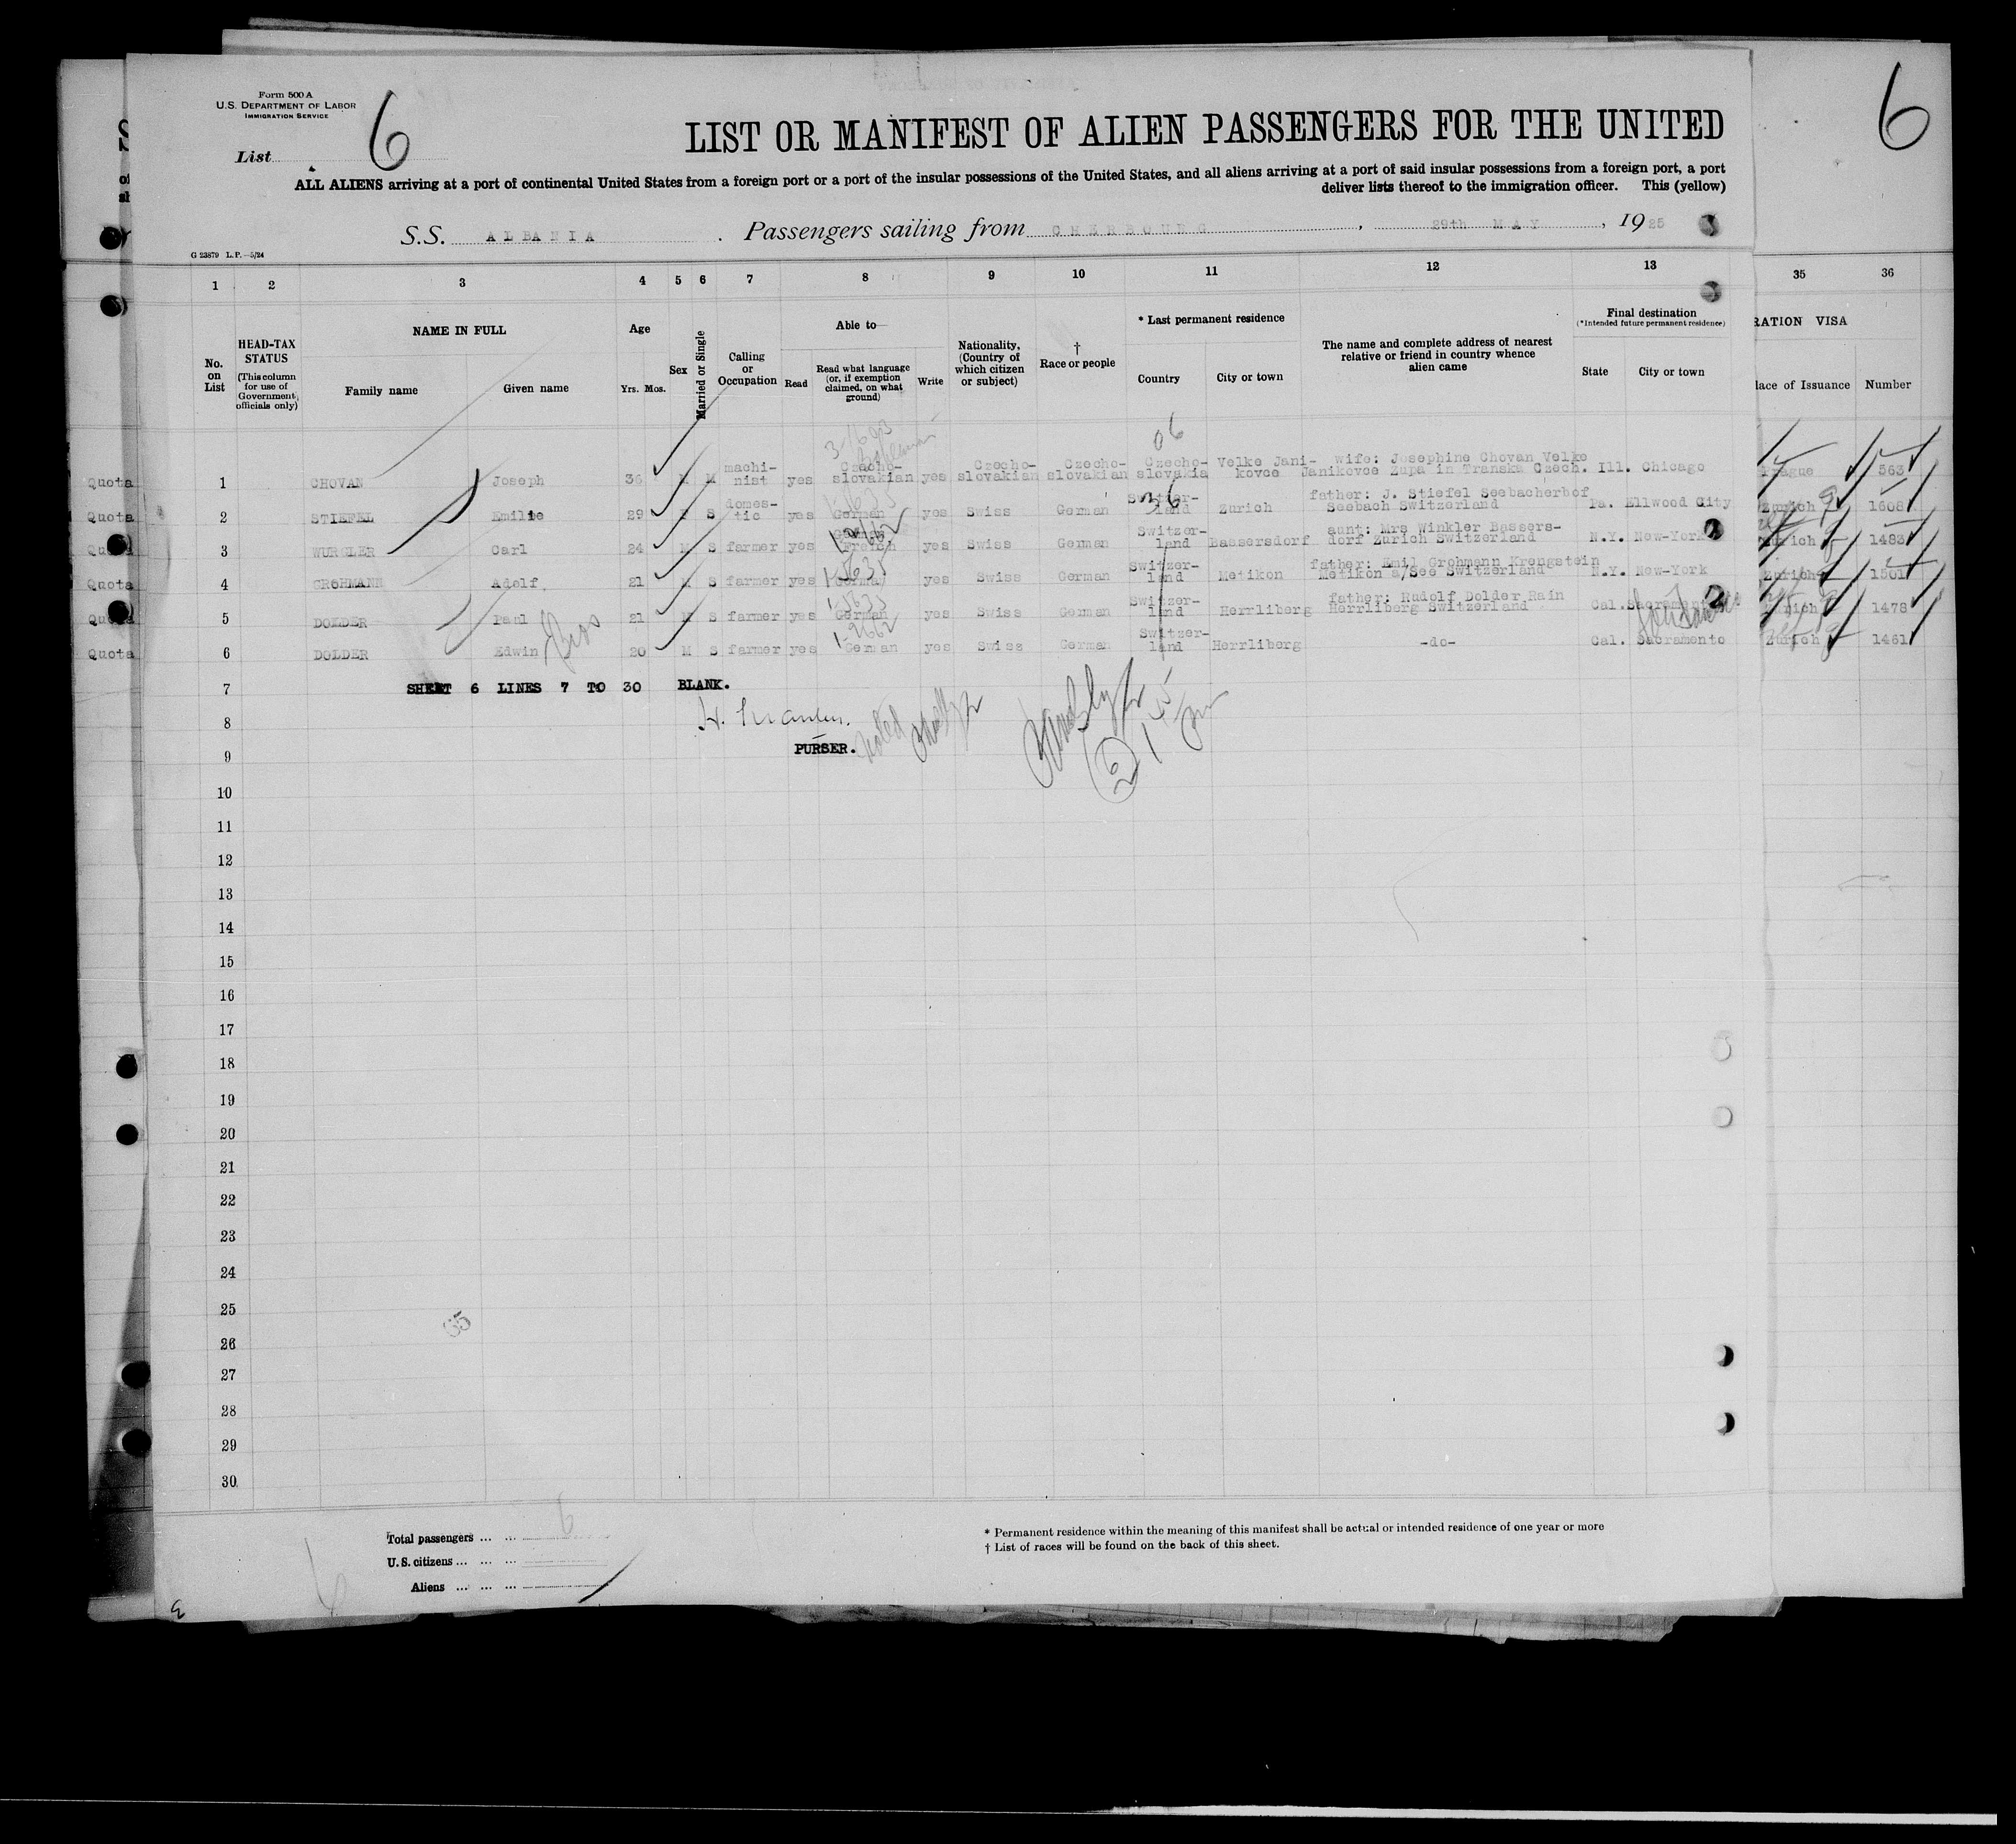 Form 500 A
U.S. DEPARTMENT OF LABOR
IMMIGRATION SERVICE
List 6
6
LIST OR MANIFEST OF ALIEN PASSENGERS FOR THE UNITED
ALL ALIENS arriving at a port of continental United States from a foreign port or a port of the insular possessions of the United States, and all aliens arriving at a port of said insular possessions from a foreign port, a port
deliver lists thereof to the immigration officer. This (yellow)
S.S. ALBANIA . Passengers sailing from CHERBOURG , 29th MAY , 1925
G 23879 L. P.—5/24
1 2 3 4 5 6 7 8 9 10 11 12 13 35 36
No. on List
HEAD-TAX STATUS
(This column for use of Government officials only)
NAME IN FULL
Family name
Given name
Age
Yrs. Mos.
Sex
Married or Single
Calling or Occupation
Able to
Read
Read what language (or, if exemption claimed, on what ground)
Write
Nationality. (Country of which citizen or subject)
† Race or people
* Last permanent residence
Country
City or town
The name and complete address of nearest relative or friend in country whence alien came
Final destination
(*Intended future permanent residence)
State
City or town
RATION VISA
lace of Issuance
Number
Quota 1 CHOVAN Joseph 36 M M machi-nist yes Czecho-slovakian yes Czecho-slovakian Czecho-slovakian Czecho-slovakia Velke Jani-kovce wife: Josephine Chovan Velke Janikovce Zupa in Transka Czech. Ill. Chicago Prague 563
Quota 2 STIEFEL Emilie 29 F S domes-tic yes German yes Swiss German Switzer-land Zurich father: J. Stiefel Seebacherhof Seebach Switzerland Pa. Ellwood City Zurich 1608
Quota 3 WURGLER Carl 24 M S farmer yes French yes Swiss German Switzer-land Bassersdorf aunt: Mrs Winkler Bassers-dorf Zurich Switzerland N.Y. New-York Zurich 1483
Quota 4 GROHMANN Adolf 21 M S farmer yes German yes Swiss German Switzer-land Metikon father: Emil Grohmann Krengstein Metikon a/See Switzerland N.Y. New-York Zurich 1501
Quota 5 DOLDER Paul 21 M S farmer yes German yes Swiss German Switzer-land Herrliberg father: Rudolf Dolder Rain Herrliberg Switzerland Cal. Sacramento Zurich 1478
Quota 6 DOLDER Edwin 20 M S farmer yes German yes Swiss German Switzer-land Herrliberg -do- Cal. Sacramento Zurich 1461
7 SHEET 6 LINES 7 TO 30 BLANK.
8
9 PURSER.
10
11
12
13
14
15
16
17
18
19
20
21
22
23
24
25
26
27
28
29
30
Total passengers ... ... 6
U. S. citizens ... ... ...
Aliens ... ... ...
* Permanent residence within the meaning of this manifest shall be actual or intended residence of one year or more
† List of races will be found on the back of this sheet.